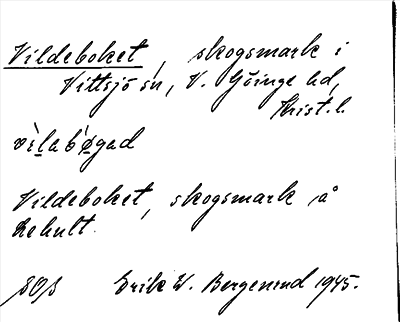 Vildeboket, skogsmark i
Vittsjö sn, V. Göinge hd,
Krist. l.
vìlabǿgad
Vildeboket, skogsmark å
Lehult.
SOS Erik W. Bergenrud 1945.